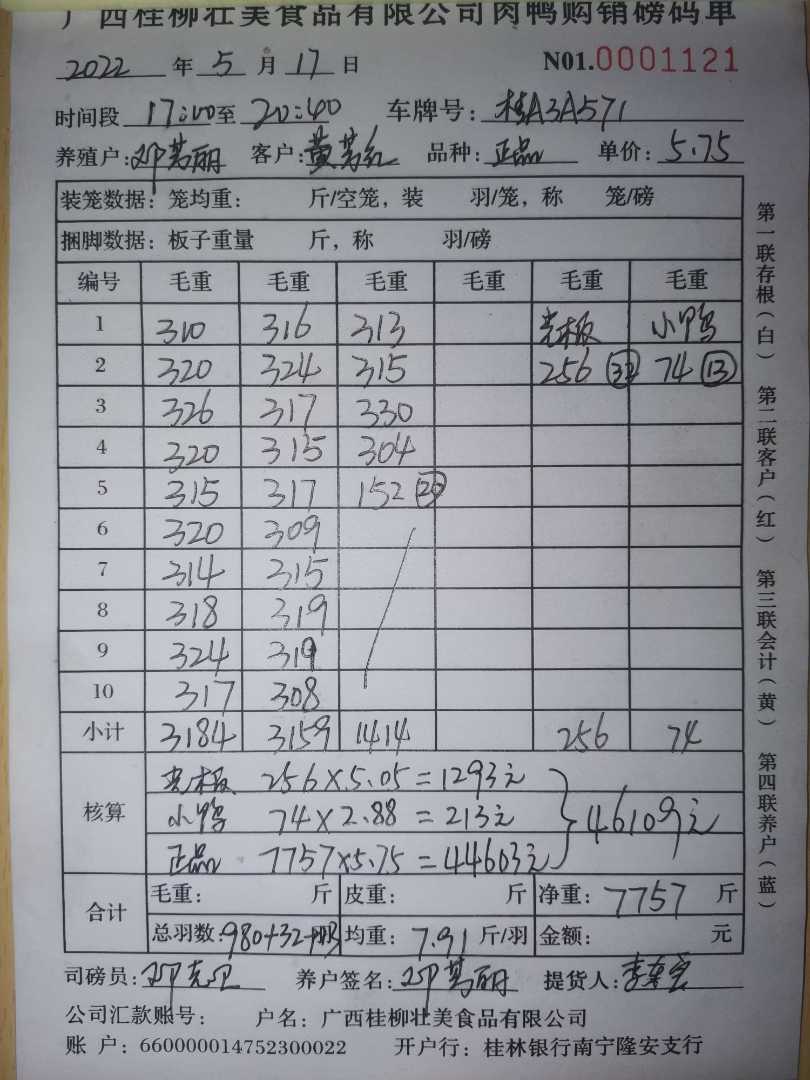 广西桂柳壮美食品有限公司肉鸭购销磅码单
2022 年 5 月 17 日 N01.0001121
时间段 17:00 至 20:40 车牌号: 桂A3A571
养殖户: 邓 丽 客户: 黄 红 品种: 正品 单价: 5.75
装笼数据: 笼均重: 斤/空笼, 装 羽/笼, 称 笼/磅
捆脚数据: 板子重量 斤, 称 羽/磅
编号 毛重 毛重 毛重 毛重 毛重 毛重
1 310 316 313 壳板 小鸭
2 320 324 315 256 32 74 13
3 326 317 330
4 320 315 304
5 315 317 152 20
6 320 309
7 314 315
8 318 319
9 324 319
10 317 308
小计 3184 3159 1414 256 74
核算
壳板 256×5.05=1293元
小鸭 74×2.88=213元
正品 7757×5.75=44603元
46109元
合计
毛重: 斤 皮重: 斤 净重: 7757 斤
总羽数: 980+32+13 均重: 7.91 斤/羽 金额: 元
司磅员: 邓 养户签名: 邓 丽 提货人: 李
公司汇款账号: 户名: 广西桂柳壮美食品有限公司
账 户: 660000014752300022 开户行: 桂林银行南宁隆安支行
第一联存根(白) 第二联客户(红) 第三联会计(黄) 第四联养户(蓝)